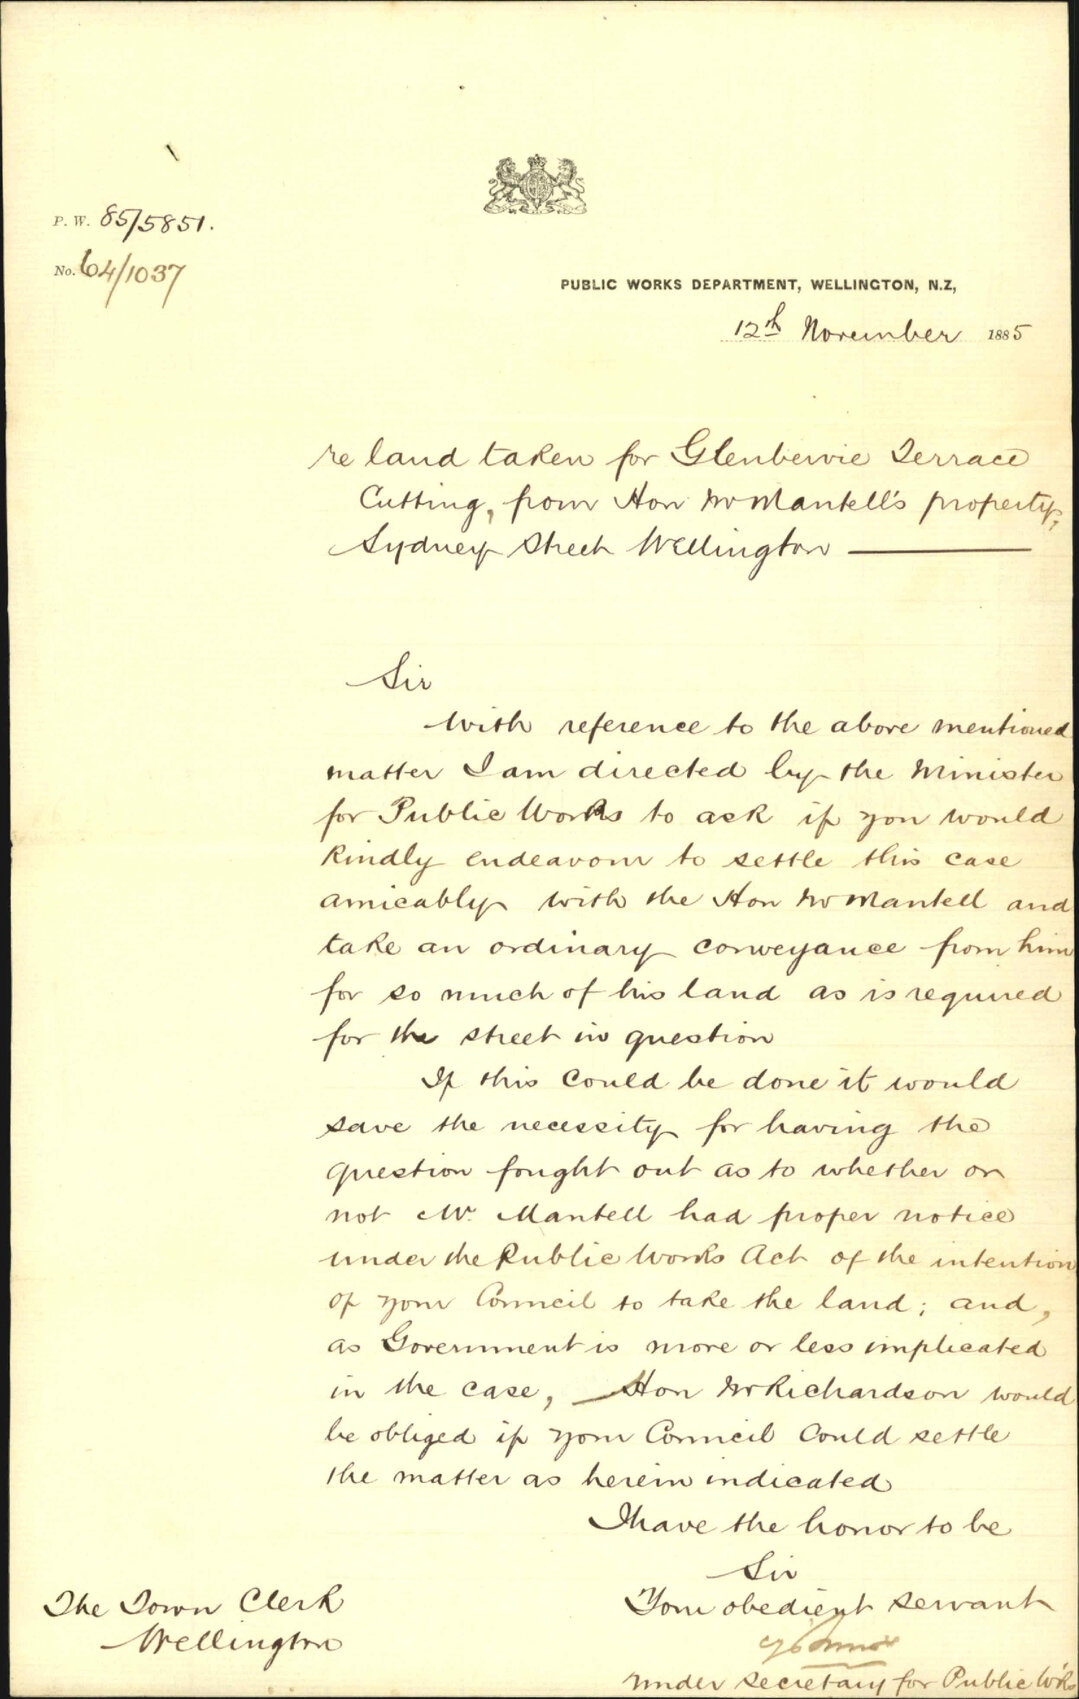 P. W. 85/5851.
No. 64/1037
PUBLIC WORKS DEPARTMENT, WELLINGTON, N.Z,
12th November 1885
re land taken for Glenbervie Terrace
Cutting, from Hon Mr Mantell's property,
Sydney Street Wellington
Sir
With reference to the above mentioned
matter I am directed by the Minister
for Public Works to ask if you would
kindly endeavour to settle this case
amicably with the Hon Mr Mantell and
take an ordinary conveyance from him
for so much of his land as is required
for the street in question
If this could be done it would
save the necessity for having the
question fought out as to whether or
not Mr. Mantell had proper notice
under the Public Works Act of the intention
of your Council to take the land; and,
as Government is more or less implicated
in the case, Hon Mr Richardson would
be obliged if your Council could settle
the matter as herein indicated
I have the honor to be
Sir
Your obedient servant
Under Secretary for Public Wks
The Town Clerk
Wellington